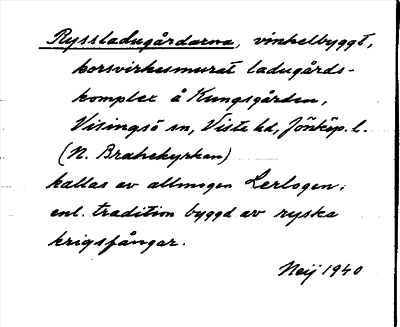 Ryssladugårdarna, vinkelbyggt,
korsvirkesmurat ladugårds-
komplex å Kungsgården,
Visingsö sn, Vista hd, Jönköp. l.
(N. Brahekyrkan)
kallas av allmogen Lerlogen;
enl. tradition byggd av ryska
krigsfångar.
Neij 1940